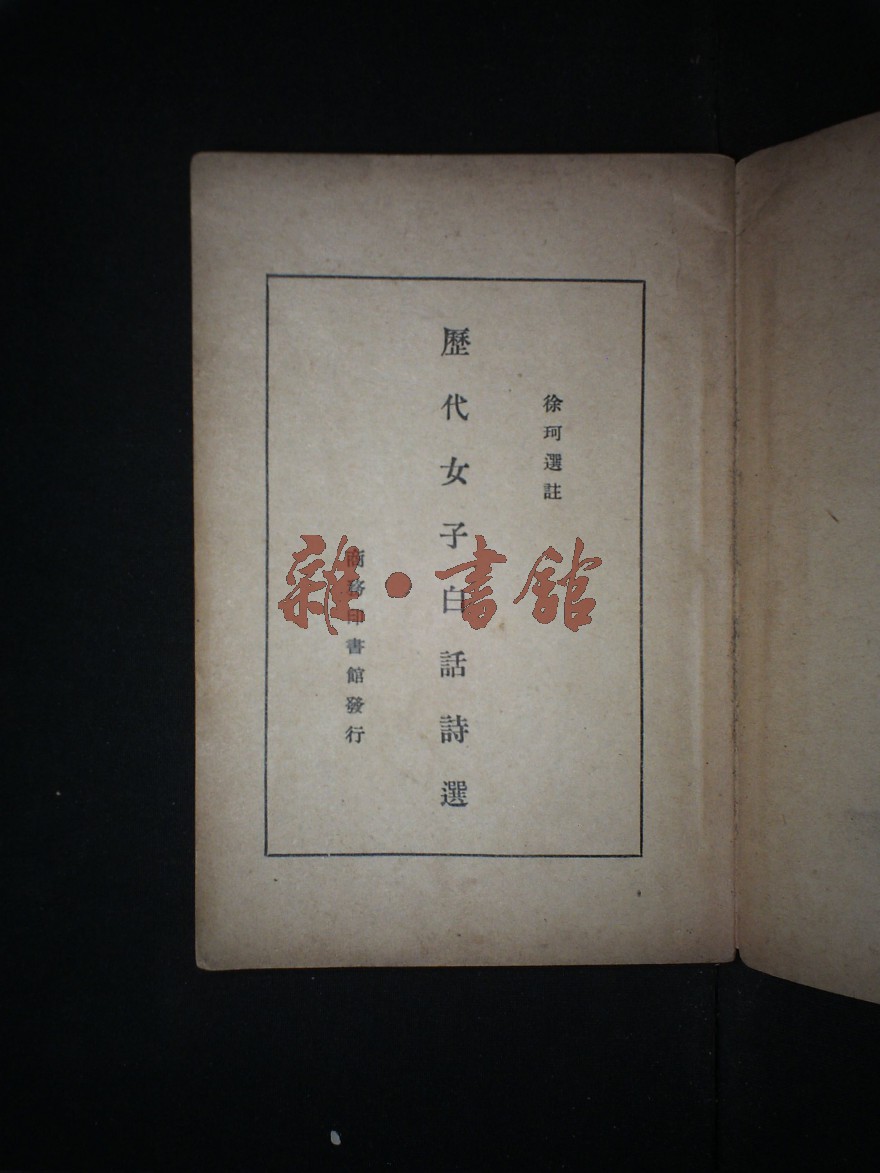 徐珂選註
歷代女子白話詩選
商務印書館發行
雜·書館